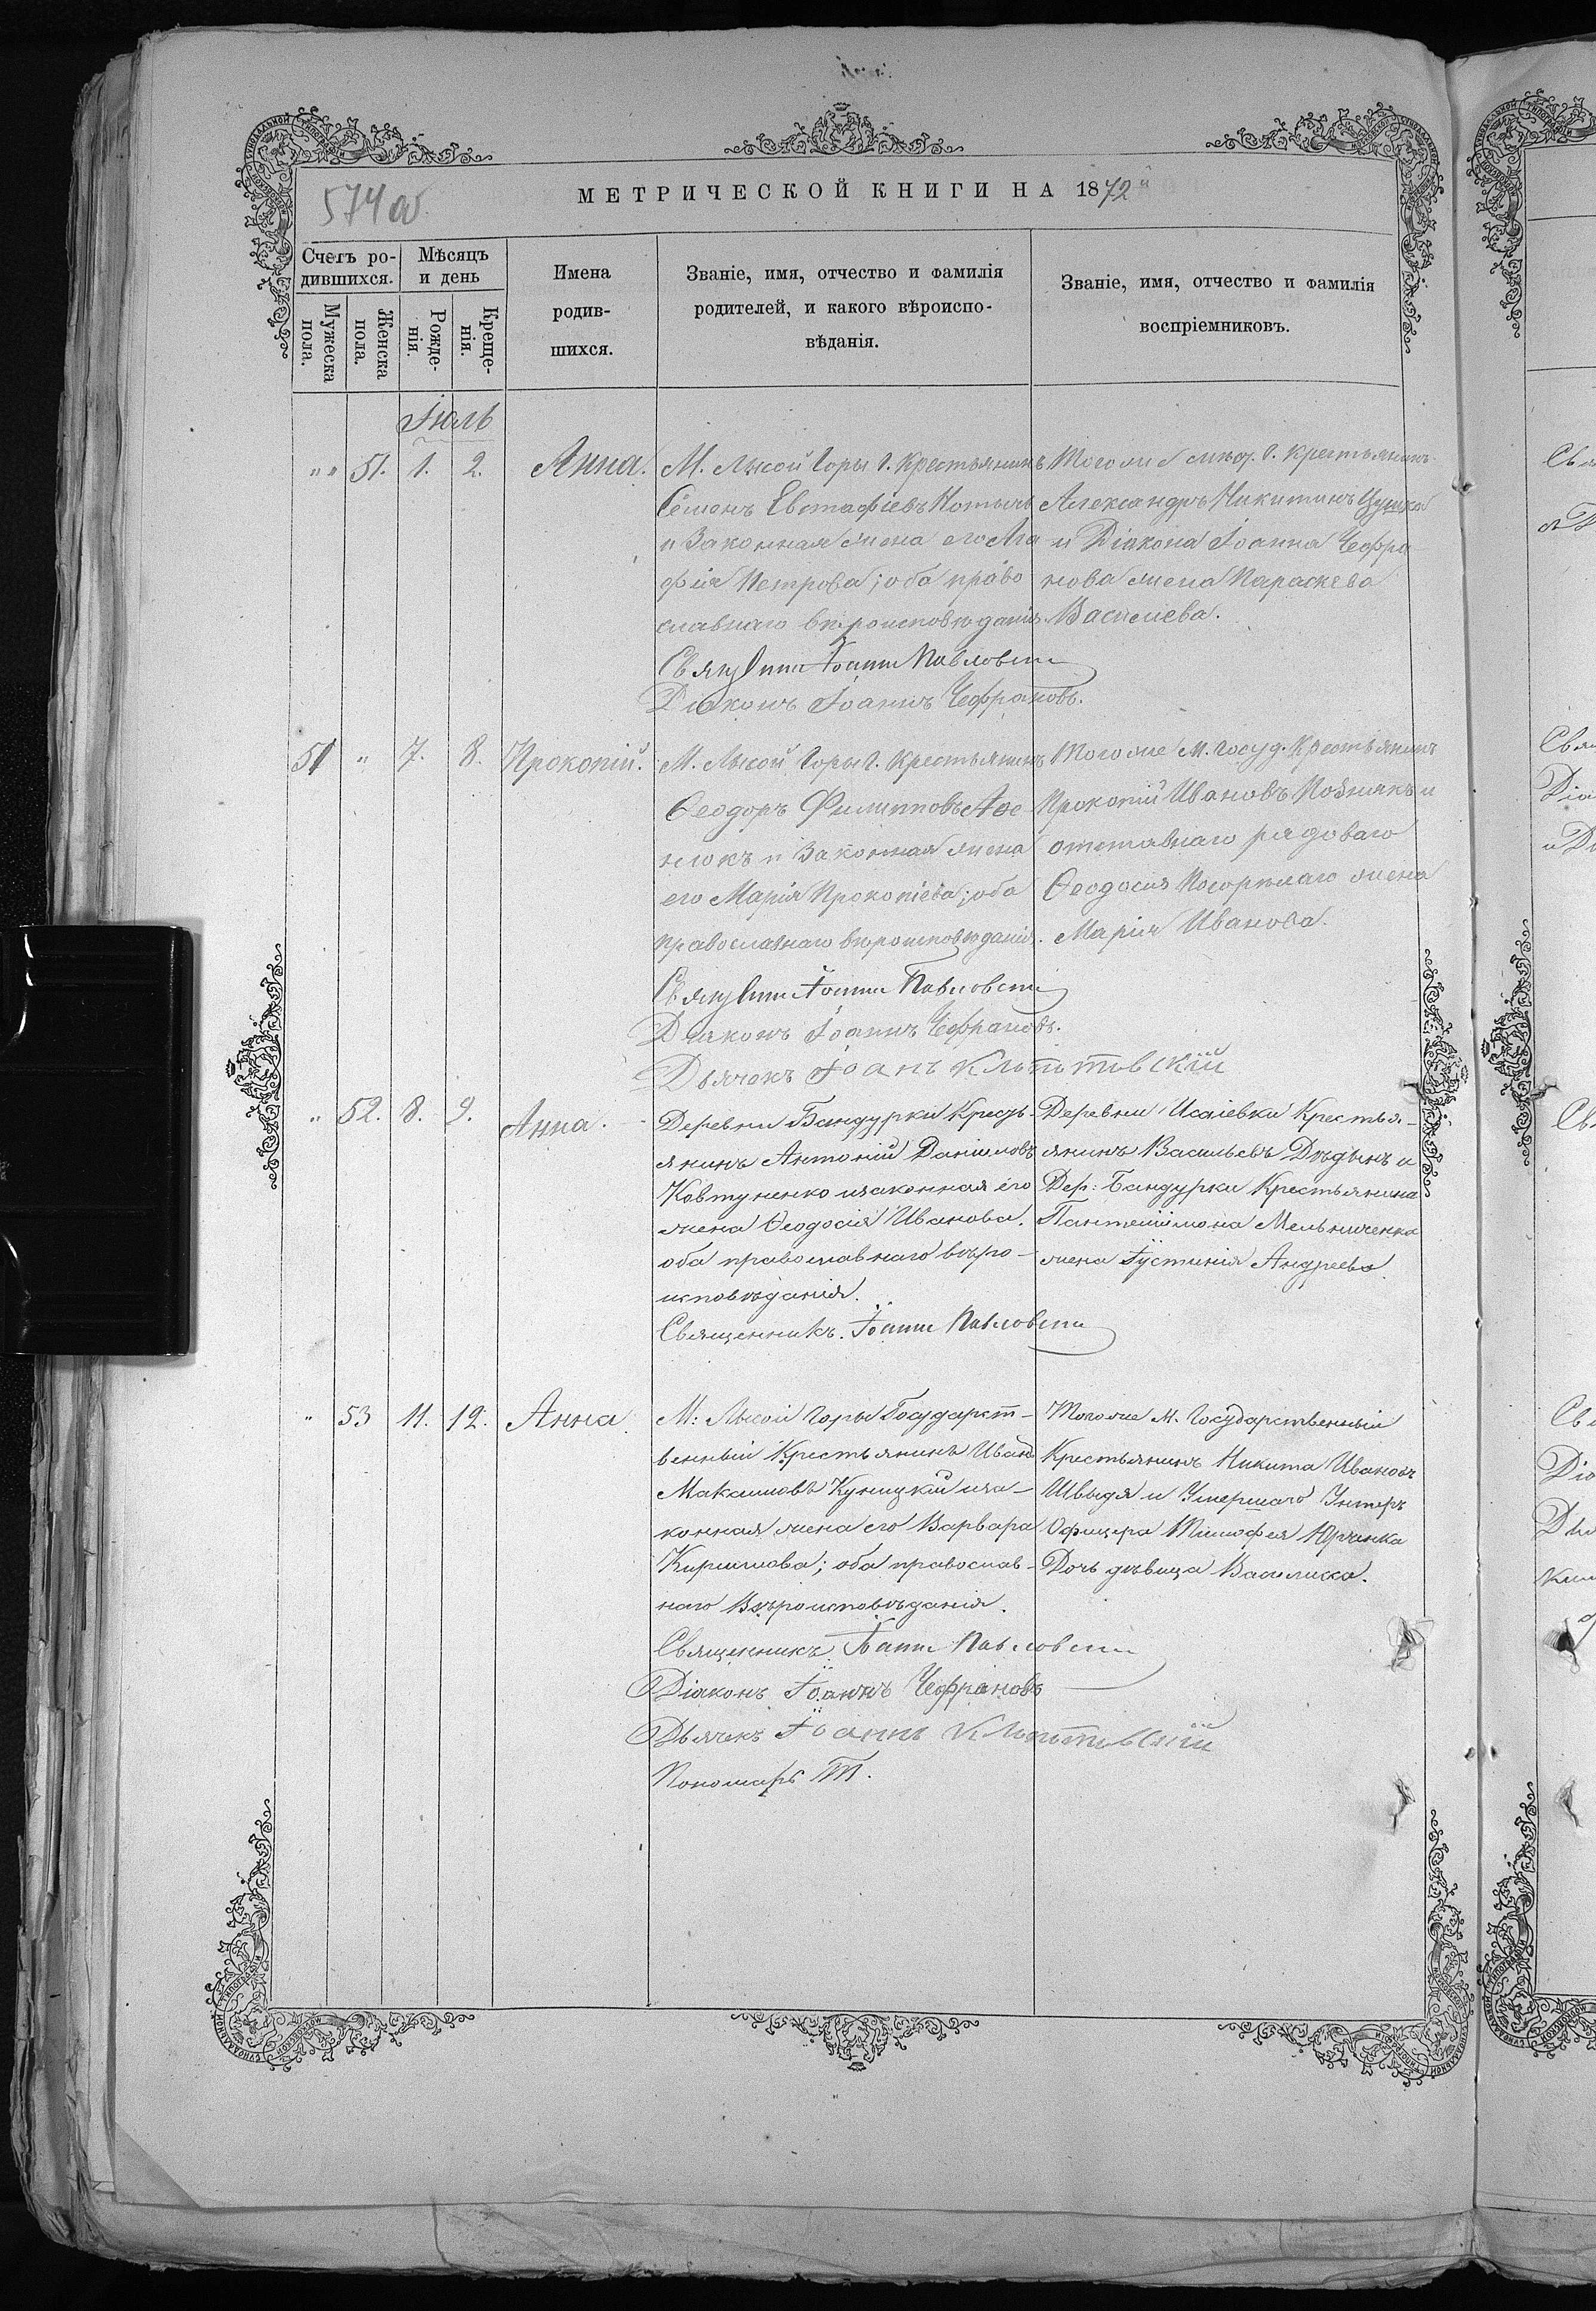 МЕТРИЧЕСКОЙ КНИГИ НА 1872
574 об
Счетъ родившихся.
Мѣсяцъ и день
Мужеска пола.
Женска пола.
Рожденія.
Крещенія.
Имена родившихся.
Званіе, имя, отчество и фамилія родителей, и какого вѣроисповѣданія.
Званіе, имя, отчество и фамилія воспріемниковъ.
Іюль
" " 51. 1. 2. Анна.
М. Лысой Горы г. Крестьянинъ
Семенъ Евстафіевъ
и законная жена его Ага
фія Петрова; оба право
славнаго вѣроисповѣданія.
Іоаннъ Павловскій
Діаконъ Іоаннъ Чефрановъ.
Того же г. крестьянинъ
Александръ Никитинъ
и Діакона Іоанна Чефра
нова жена Параскева
Василиева.
51 " 7. 8. Прокопій.
М. Лысой Горы г. Крестьянинъ
Ѳеодоръ Филипповъ
и законная жена
его Марія Прокопіева; оба
православнаго вѣроисповѣданія.
Іоаннъ Павловскій
Діаконъ Іоаннъ Чефрановъ.
Дьячокъ Іоанъ
Того же м. госуд. Крестьянинъ
Прокопій Ивановъ Познякъ и
отставнаго рядоваго
Ѳеодосія Погорѣлаго жена
Марія Иванова.
" 52. 8. 9. Анна.
Деревни Бандурки Кресть-
янинъ Антоній Даніиловъ
Ковтуненко и законная его
жена Ѳеодосія Иванова.
оба православнаго вѣро-
исповѣданія.
Священникъ. Іоаннъ Павловскій
Деревни Исаіевки Крестья-
янинъ Васильевъ Дѣдынъ и
Дер: Бандурки Крестьянина
Пантелиімона Мельниченка
жена Іустинія Андреева
" 53 11. 12. Анна
М: Лысой Горы Государст-
венный Крестьянинъ Иванъ
Максимовъ Куницкій и за-
конная жена его Варвара
Кириллова; оба православ-
наго Вѣроисповѣданія.
Священникъ. Іоаннъ Павловскій
Діаконъ Іоаннъ Чефрановъ
Дьячекъ Іоаннъ
Пономарь
Того же М. Государственный
Крестьянинъ Никита Ивановъ
Швыдя и Умершаго Унтеръ
Офицера Тимофея Юрченка
Дочь дѣвица Василисса.